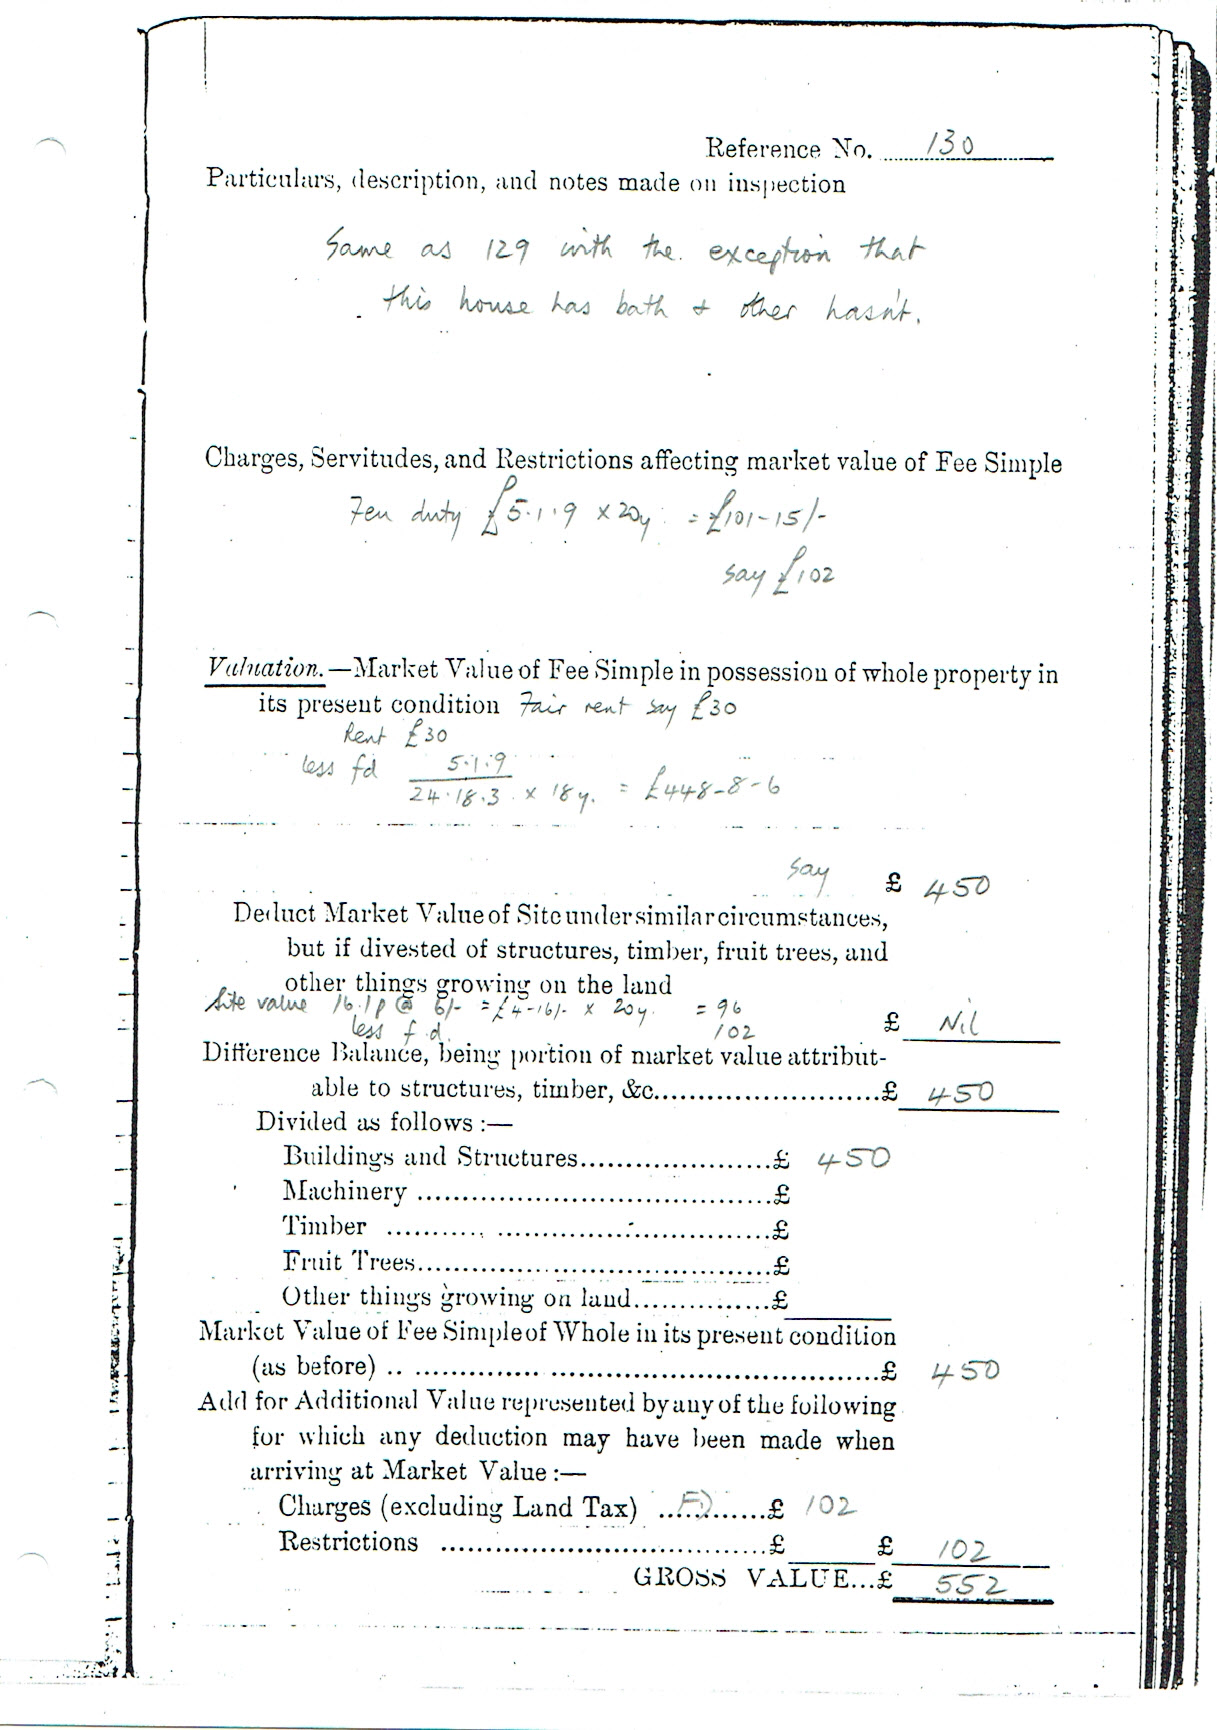 Reference No. 130
Particulars, description, and notes made on inspection
Same as 129 with the exception that
this house has bath & other hasn't.
Charges, Servitudes, and Restrictions affecting market value of Fee Simple
Feu duty £5.1.9 x 20y. = £101-15/-
say £102
Valuation.—Market Value of Fee Simple in possession of whole property in
its present condition Fair rent say £30
Rent £30
less fd 5.1.9
24.18.3 x 18y. = £448-8-6
say £ 450
Deduct Market Value of Site under similar circumstances,
but if divested of structures, timber, fruit trees, and
other things growing on the land
Site value 16.1p @ 6/- = £4-16/- x 20y. = 96
less f.d. 102 £ Nil
Difference Balance, being portion of market value attribut-
able to structures, timber, &c.........................£ 450
Divided as follows :—
Buildings and Structures.....................£ 450
Machinery .......................................£
Timber ..........................................£
Fruit Trees.......................................£
Other things growing on land...............£
Market Value of Fee Simple of Whole in its present condition
(as before) .. ....................................................£ 450
Add for Additional Value represented by any of the following
for which any deduction may have been made when
arriving at Market Value :—
Charges (excluding Land Tax) ..FD......£ 102
Restrictions ....................................£ £ 102
GROSS VALUE...£ 552